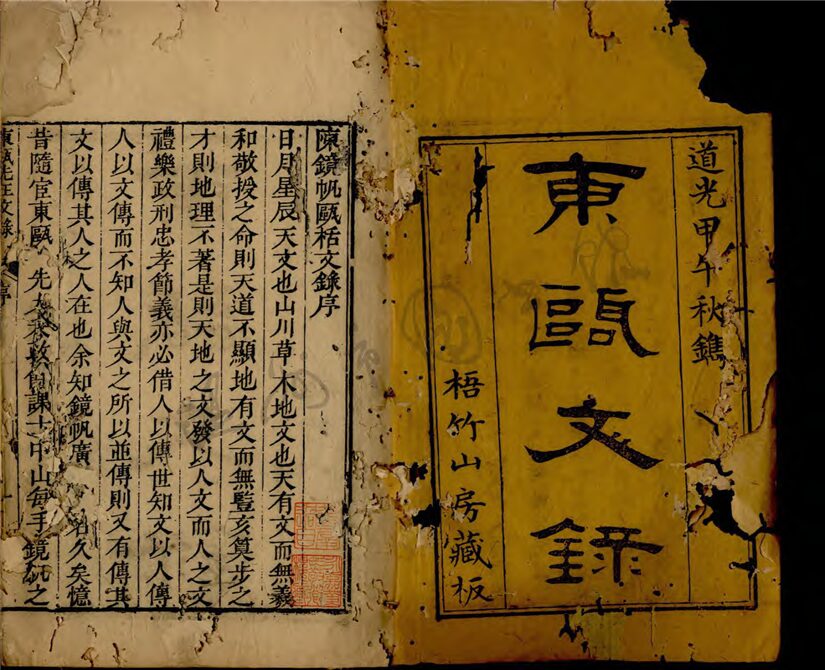 道光甲午秋鐫
東甌文錄
梧竹山房藏板
陳鏡帆甌栝文錄序
日月星辰天文也山川草木地文也天有文而無羲
和敬授之命則天道不顯地有文而無豎亥算步之
才則地理不著是則天地之文發以人文而人之文
禮樂政刑忠孝節義亦必借人以傳世知文以人傳
人以文傳而不知人與文之所以並傳則又有傳其
文以傳其人之人在也余知鏡帆廣名久矣憶
昔隨宦東甌先大課士中山每手鏡帆之